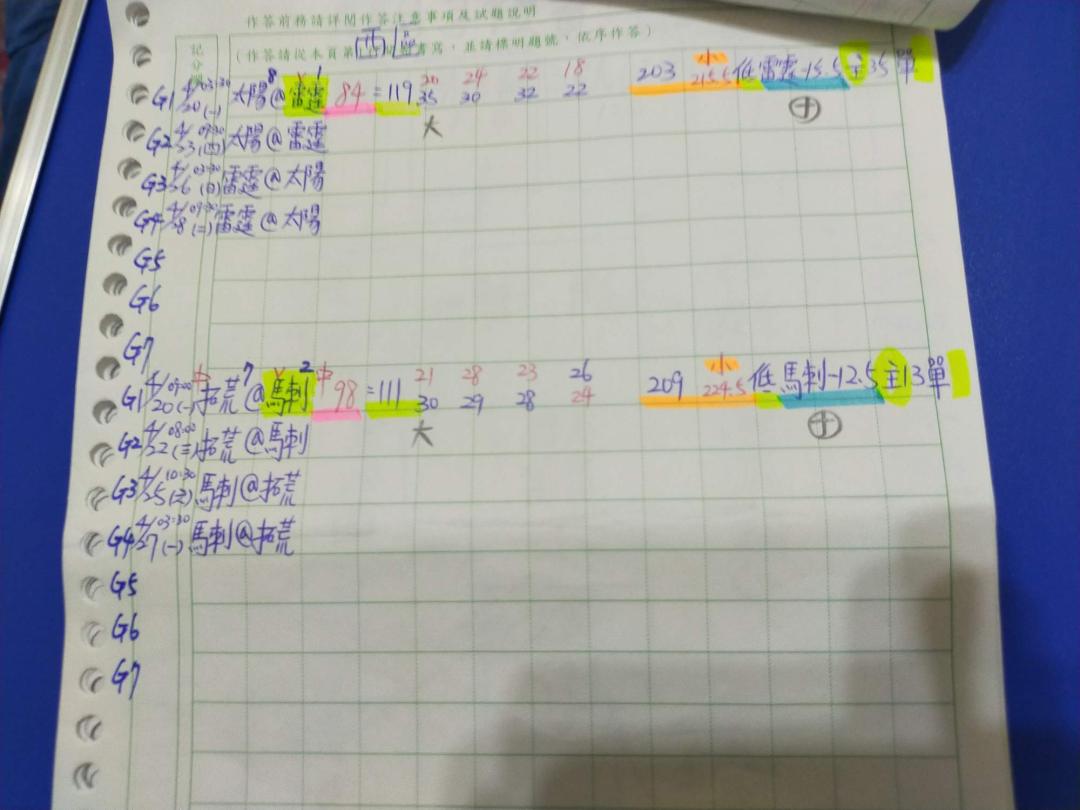 作答前務請詳閱作答注意事項及試題說明
西區
記分欄
(作答請從本頁第 書寫,並請標明題號,依序作答)
G1 4/20 03:30 (一) 太陽 8 @ 雷霆 1 84 = 119 20 24 22 18 203 小 215.5 低 雷霆-15.5 主35 單
35 30 32 22
大
G2 4/23 09:30 (四) 太陽@雷霆
G3 4/26 03:30 (日) 雷霆@太陽
G4 4/28 09:30 (二) 雷霆@太陽
G5
G6
G7
G1 4/20 09:00 (一) 拓荒 7 @ 馬刺 2 98 = 111 21 28 23 26 209 小 224.5 低 馬刺-12.5 主13 單
30 29 28 24
大
G2 4/22 08:00 (三) 拓荒@馬刺
G3 4/25 10:30 馬刺@拓荒
G4 4/27 03:30 (一) 馬刺@拓荒
G5
G6
G7